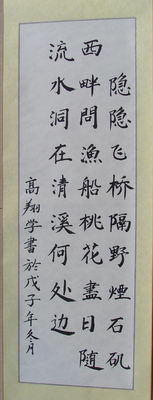 隐隐飞桥隔野煙石矶
西畔問漁船桃花盡日随
流水洞在清溪何处边
高翔学書於戊子年冬月